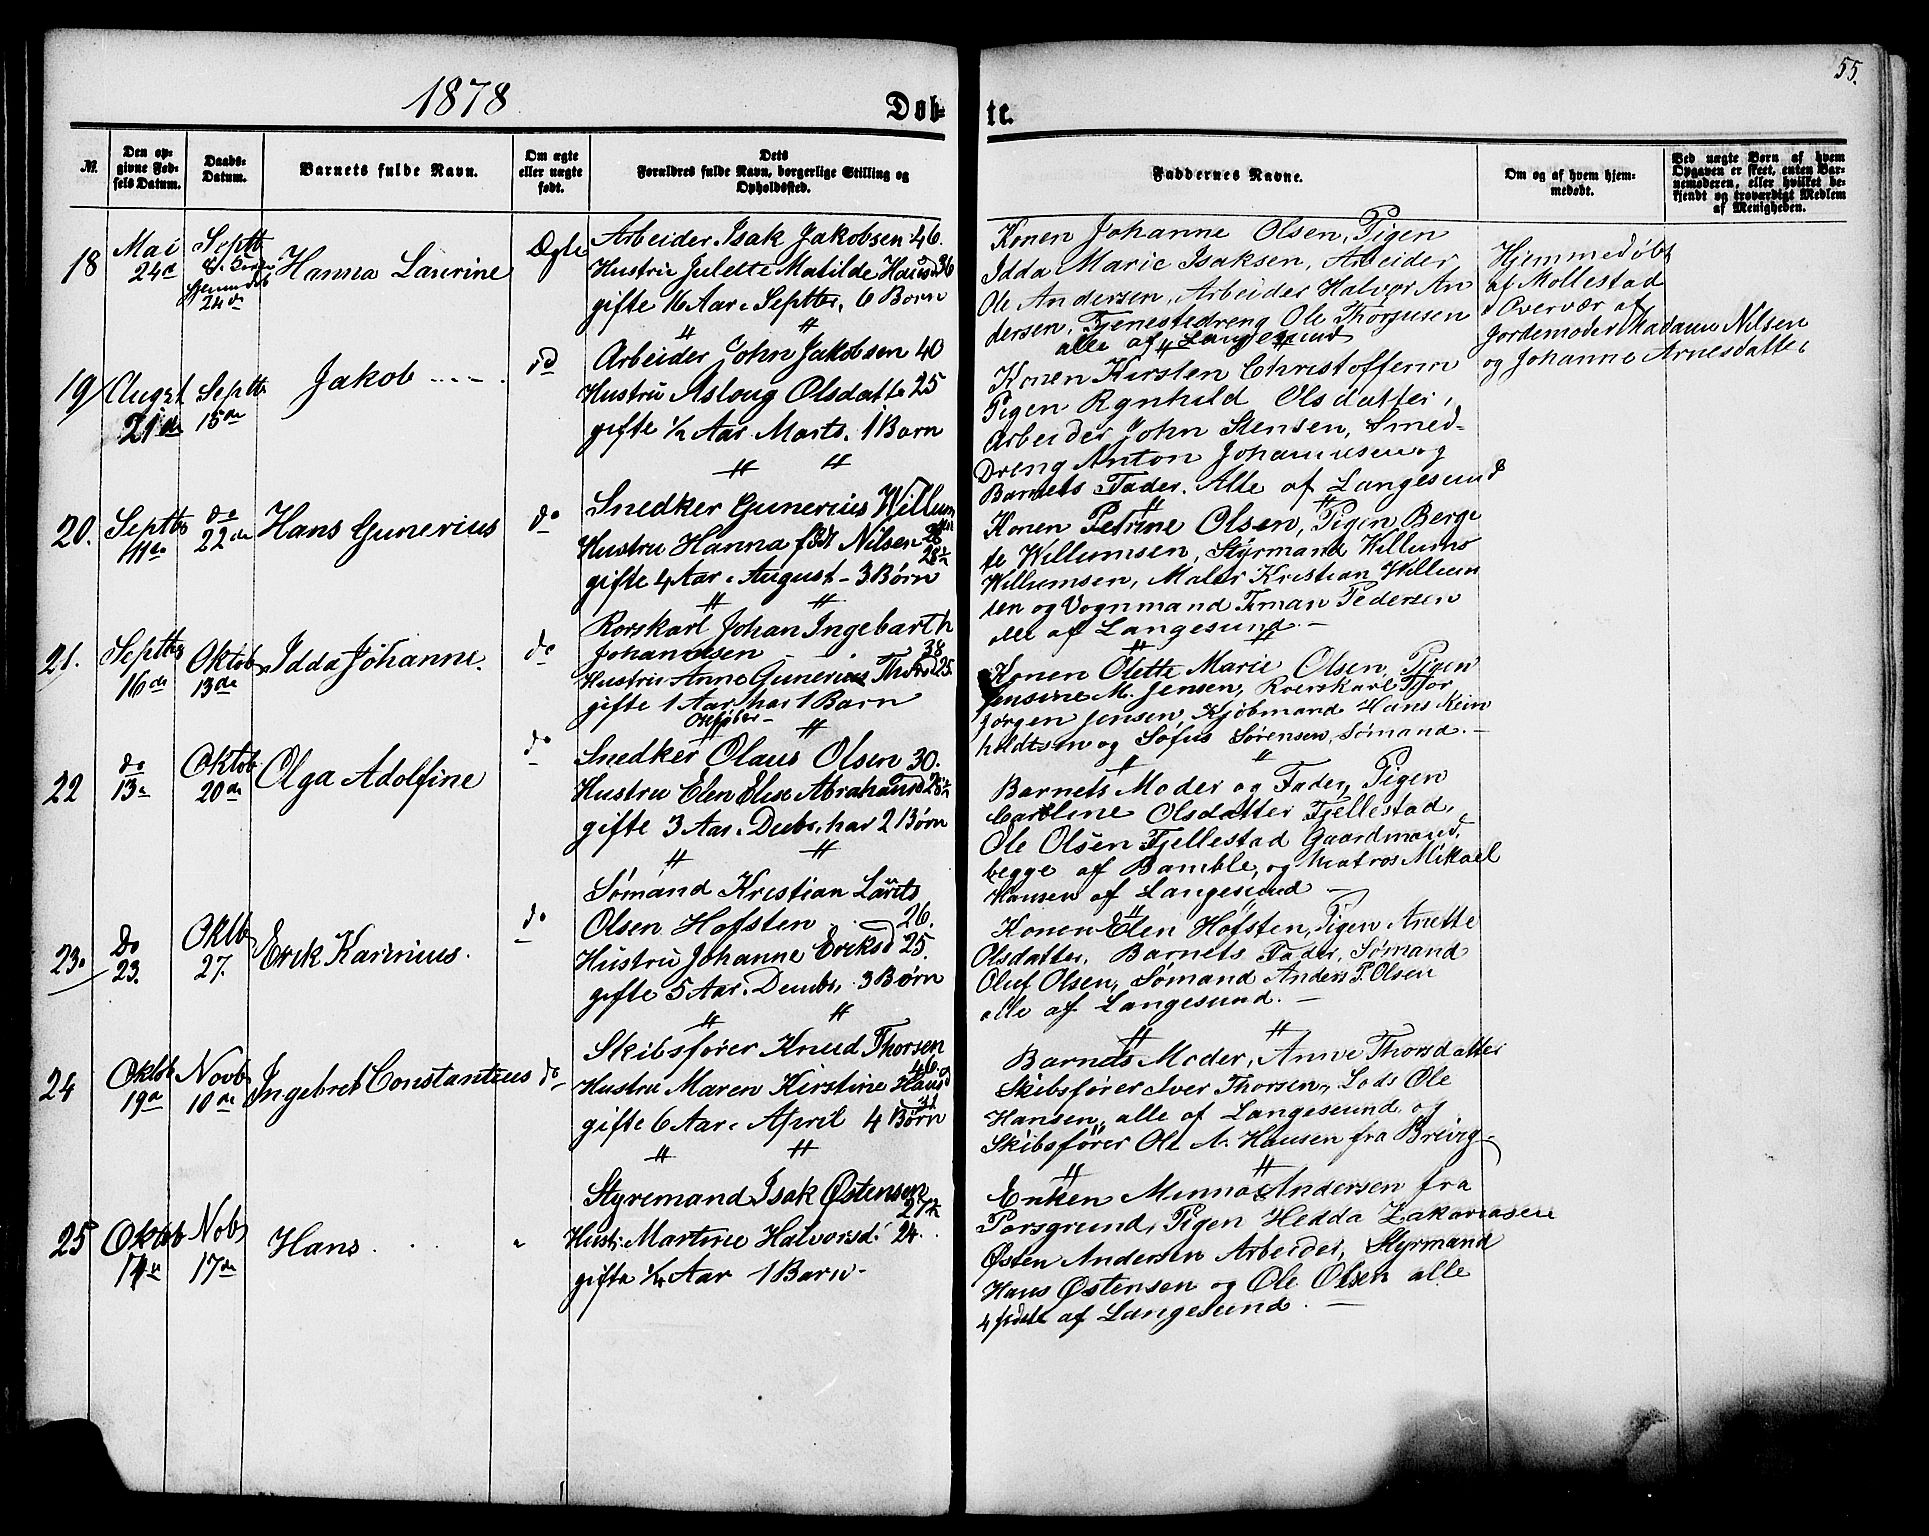 1878
Døb-
te.
55.
№.
Den op-
givne Fød-
sels Datum.
Daabs-
Datum.
Barnets fulde Navn.
Om ægte
eller uægte
født.
Dets
Forældres fulde Navn, borgerlige Stilling og
Opholdssted.
Faddernes Navne.
Om og af hvem hjem-
medøbt.
Ved uægte Børn af hvem
Opgaven er skeet, enten Bar-
nemoderen, eller hvilket be-
kjendt og troværdigt Medlem
af Menigheden.
18
Mai
24de
Septb
8.
Hjemmedøbt
24de
Hanna Laurine
Ægte
Arbeider Isak Jakobsen 46.
Hustru Julette Matilde Hansd 36
gifte 16 Aar i Septbr, 6 Børn
Konen Johanne Olsen, Pigen
Idda Marie Isaksen, Arbeider
Ole Andersen, Arbeider Halvor An
dersen, Tjenestedreng Ole Thorjusen
alle af Langesund
Hjemmedøbt
af Mollestad
i Overvær af
Jordemoder Madame Nilsen
og Johanne Arnesdatter
19
August
21de
Septb
15de
Jakob
id
Arbeider John Jakobsen 40
Hustru Asloug Olsdatter 25
gifte ½ Aar Marts. 1 Barn
Konen Kirsten Christoffersen
Pigen Rgnhild Olsdatter,
Arbeider John Stensen, Smed-
Dreng Anton Johannesen og
Barnets Fader. Alle af Langesund
20.
Septbr
11te
do
22de
Hans Gunerius
do
Snedker Gunerius Willum
sen 28
Hustru Hanna født Nilsen 28½
gifte 4 Aar i August - 3 Børn
Konen Petrine Olsen, Pigen Berge
te Willumsen, Styrmand Willums
Willumsen, Maler Kristian Willum
sen og Vognmand Timan Pedersen
alle af Langesund. -
21.
Septbr
16de
Oktob
13de
Idda Johanne.
do
Rorskarl Johan Ingebarth
Johannesen - - 38
Hustru Anne Gunerius Thorsd 25.
gifte 1 Aar, har 1 Barn
Oktober -
Konen Olette Marie Olsen, Pigen
Jensine M. Jensen, Roerskarl Thor
Jørgen Jensen, Kjøbmand Hans Rein
holdtsen og Sofus Sørensen, Sømand. -
22
do
13de
Oktob
20de
Olga Adolfine
do
Snedker Olaus Olsen 30.
Hustru Elen Elise Abrahamsd 25½
gifte 3 Aar i Decbr, har 2 Børn
Barnets Moder og Fader, Pigen
Caroline Olsdatter Fjellestad,
Ole Olsen Fjellestad Gaardmand,
begge af Bamble, og Matros Mikael
Hansen af Langesund -
23.
Do
23.
Oktb
27.
Erik Karinius.
do
Sømand Kristian Laurits
Olsen Hofsten 26.
Hustru Johanne Eriksd 25.
gifte 5 Aar i Decmbr, 3 Børn
Konen Elen Hofsten, Pigen Anette
Olsdatter, Barnets Fader, Sømand
Oluf Olsen, Sømand Anders P. Olsen
alle af Langesund. -
24
Oktob
19de
Novb
10de
Ingebret Constantius
do
Skibsfører Knud Thorsen
46.
Hustru Maren Kirstine Hansd
gifte 6 Aar i April 4 Børn
Barnets Moder, Anne Thorsdatter
Skibsfører Iver Thorsen, Lods Ole
Hansen, alle af Langesund, og
Skibsfører Ole N. Hansen fra Brevig
25
Oktob
14de
Nobr
17de
Hans
Styremand Isak Østensen
27½
Hustr. Martine Halvorsd. 24.
gifte ¼ Aar 1 Barn -
Enken Minna Andersen fra
Porsgrund, Pigen Hedda Zakariasen
Østen Andersen Arbeider, Styrmand
Hans Østensen og Ole Olsen alle
4 sidste af Langesund. -